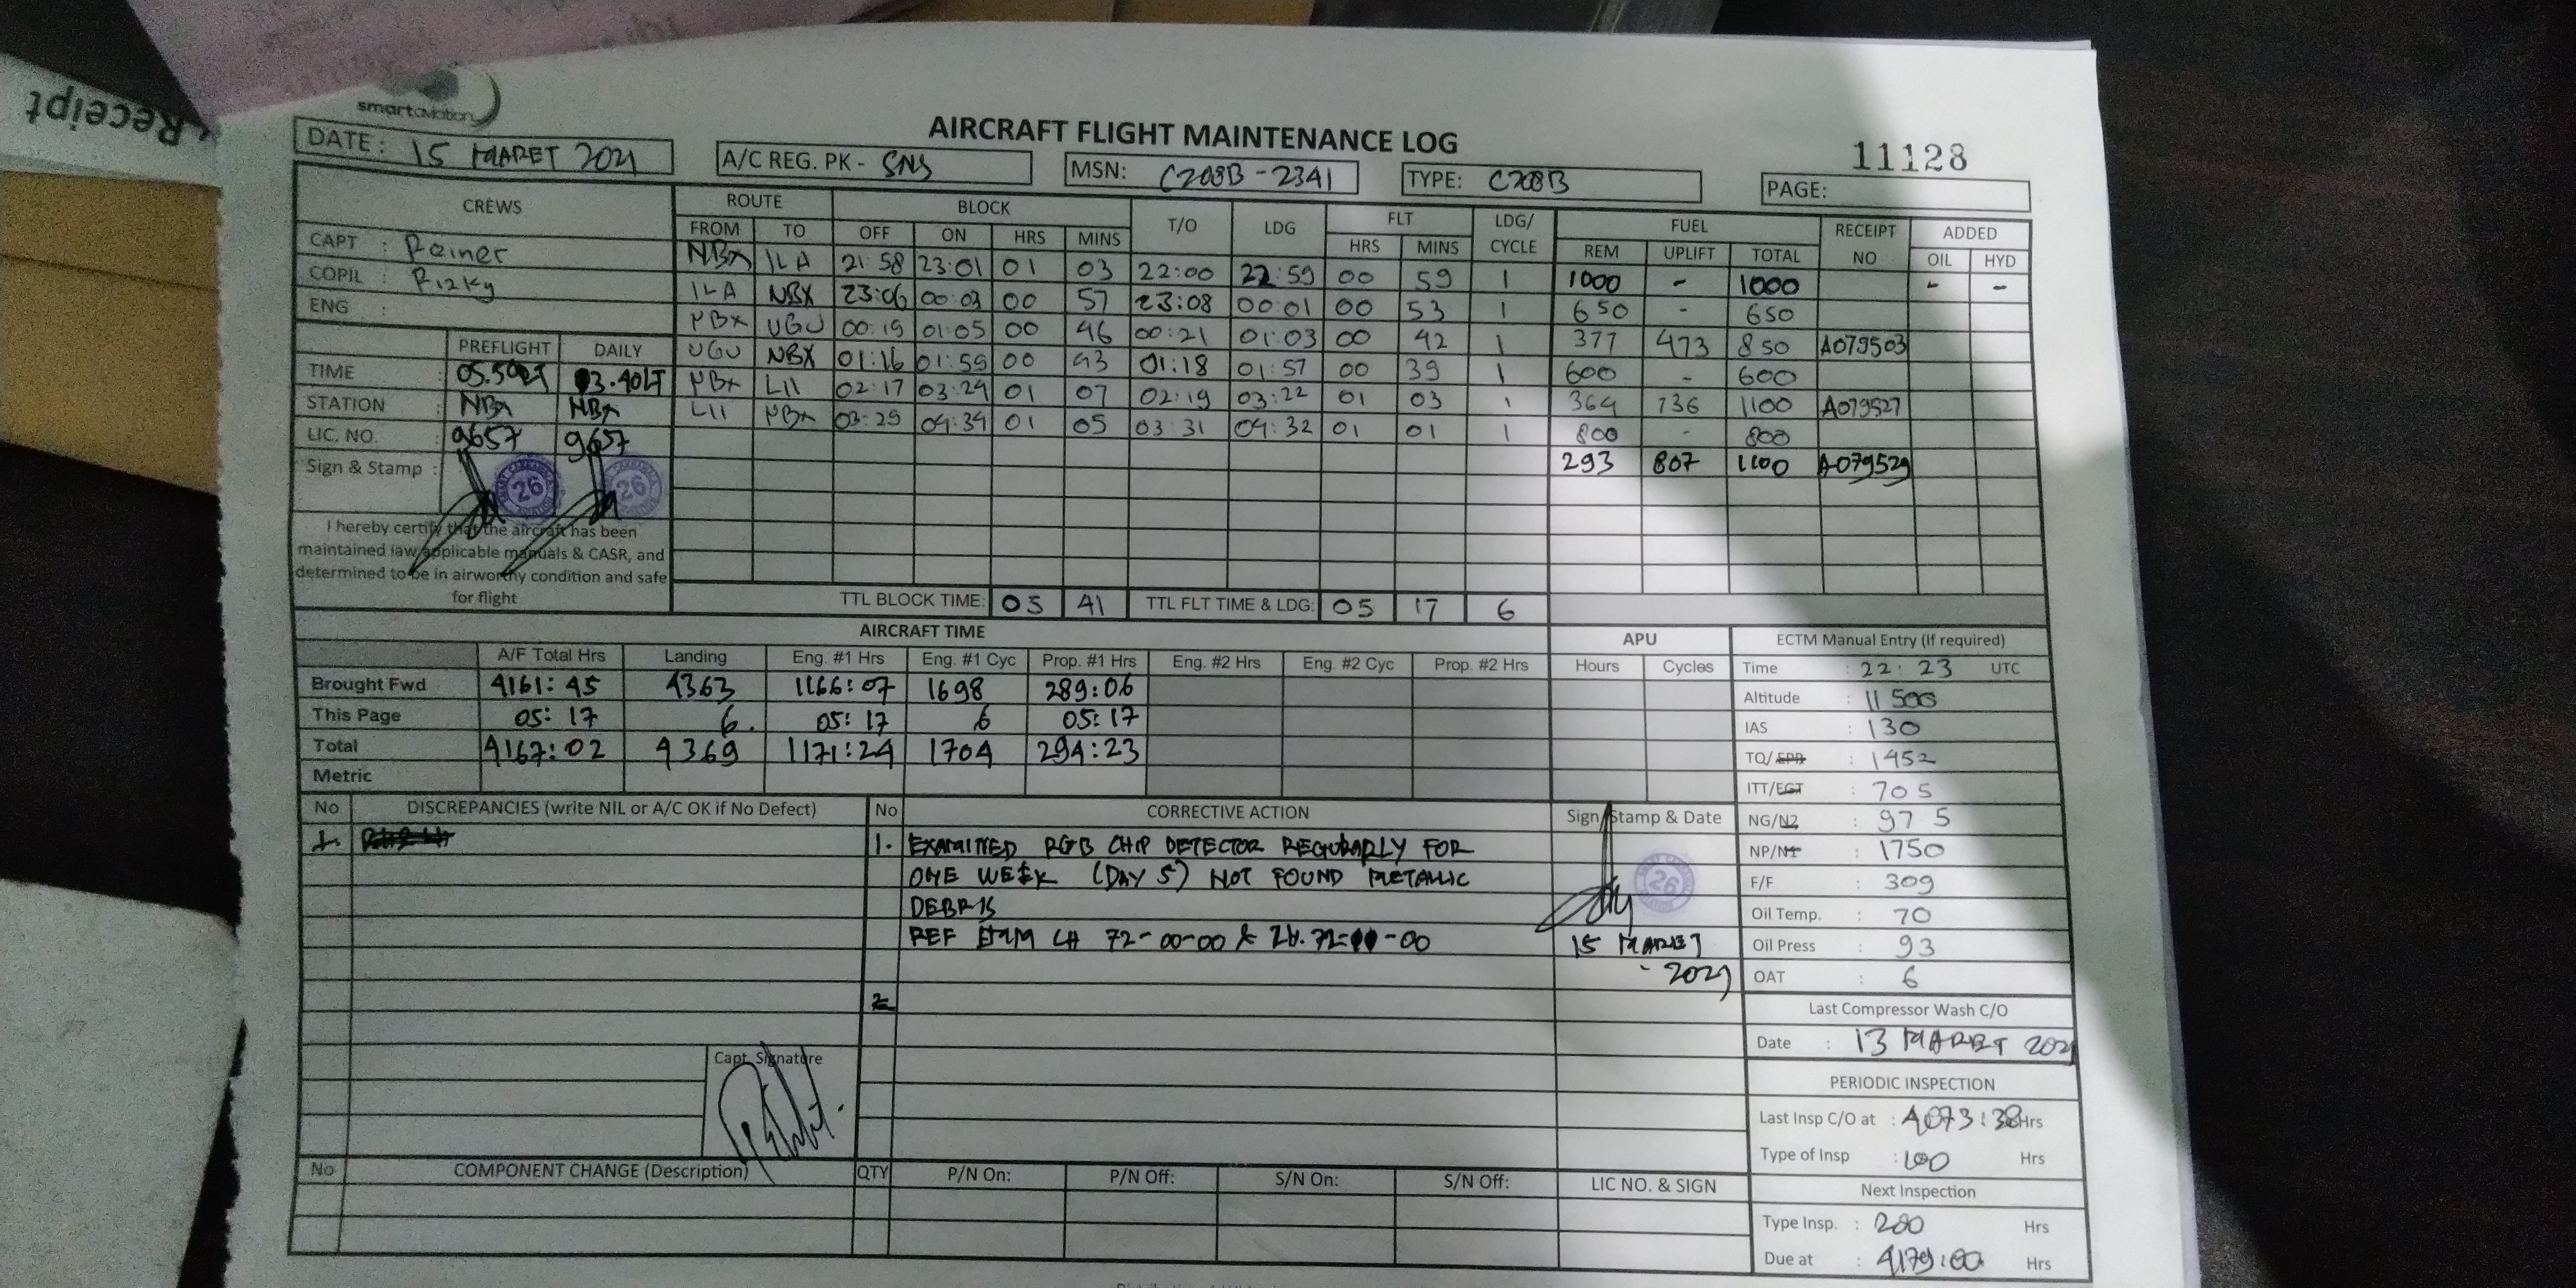 Receipt
smartaviation
AIRCRAFT FLIGHT MAINTENANCE LOG
11128
DATE: 15 MARET 2021
A/C REG. PK - SNS
MSN: C208B - 2341
TYPE: C208B
PAGE:
CREWS
CAPT : Reiner
COPIL : Rizky
ENG :
PREFLIGHT DAILY
TIME 05.50LT 03.40LT
STATION : NBX NBX
LIC. NO. : 9657 9657
Sign & Stamp : 26 26
I hereby certify that the aircraft has been
maintained iaw applicable manuals & CASR, and
determined to be in airworthy condition and safe
for flight
ROUTE BLOCK T/O LDG FLT LDG/ CYCLE FUEL RECEIPT NO ADDED
FROM TO OFF ON HRS MINS HRS MINS REM UPLIFT TOTAL OIL HYD
NBX ILA 21:58 23:01 01 03 22:00 22:59 00 59 1 1000 - 1000 - -
ILA NBX 23:06 00:03 00 57 23:08 00:01 00 53 1 650 - 650
NBX UGU 00:19 01:05 00 46 00:21 01:03 00 42 1 377 473 850 A079503
UGU NBX 01:16 01:59 00 43 01:18 01:57 00 39 1 600 - 600
NBX LII 02:17 03:24 01 07 02:19 03:22 01 03 1 364 736 1100 A079527
LII NBX 03:29 04:34 01 05 03:31 04:32 01 01 1 800 - 800
293 807 1100 A079529
TTL BLOCK TIME: 05 41 TTL FLT TIME & LDG: 05 17 6
AIRCRAFT TIME
A/F Total Hrs Landing Eng. #1 Hrs Eng. #1 Cyc Prop. #1 Hrs Eng. #2 Hrs Eng. #2 Cyc Prop. #2 Hrs
Brought Fwd 4161:45 4363 1166:07 1698 289:06
This Page 05:17 6. 05:17 6 05:17
Total 4167:02 4369 1171:24 1704 294:23
Metric
APU
Hours Cycles
ECTM Manual Entry (If required)
Time : 22:23 UTC
Altitude : 11 500
IAS : 130
TQ/EPR : 1452
ITT/EGT : 705
NG/N2 : 97 5
NP/N1 : 1750
F/F : 309
Oil Temp. : 70
Oil Press : 93
OAT : 6
Last Compressor Wash C/O
Date : 13 MARET 2021
PERIODIC INSPECTION
Last Insp C/O at : 4073:38 Hrs
Type of Insp : 100 Hrs
Next Inspection
Type Insp. : 200 Hrs
Due at : 4179:00 Hrs
No DISCREPANCIES (write NIL or A/C OK if No Defect)
1.
Capt. Signature
No CORRECTIVE ACTION Sign Stamp & Date
1. EXAMINED RGB CHIP DETECTOR REGULARLY FOR
ONE WEEK (DAY 5) NOT FOUND METALLIC
DEBRIS
REF EMM CH 72-00-00 &
26
15 MARET
- 2021
2
No COMPONENT CHANGE (Description) QTY P/N On: P/N Off: S/N On: S/N Off: LIC NO. & SIGN